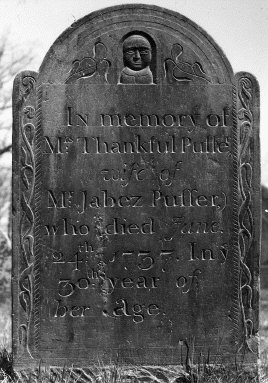 In memory of
Mrs Thankful Puffer
wife of
Mr. Jabez Puffer,
who died June.
24th 1737. In ye
30th year of
her age.